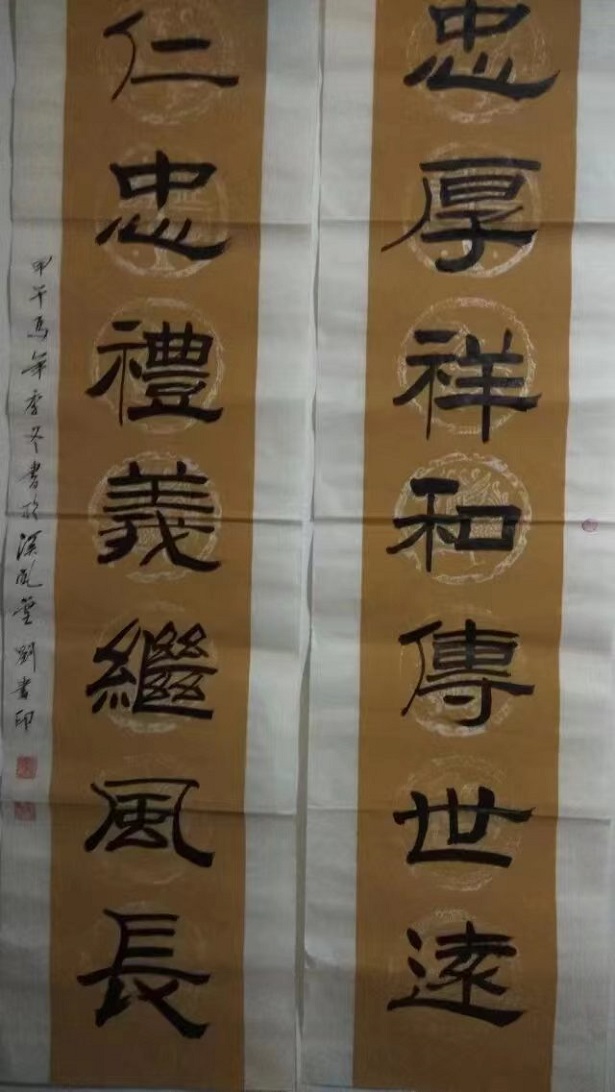 忠厚祥和傳世遠
仁忠禮義繼風長
甲午馬年季冬書於漢風堂劉書印